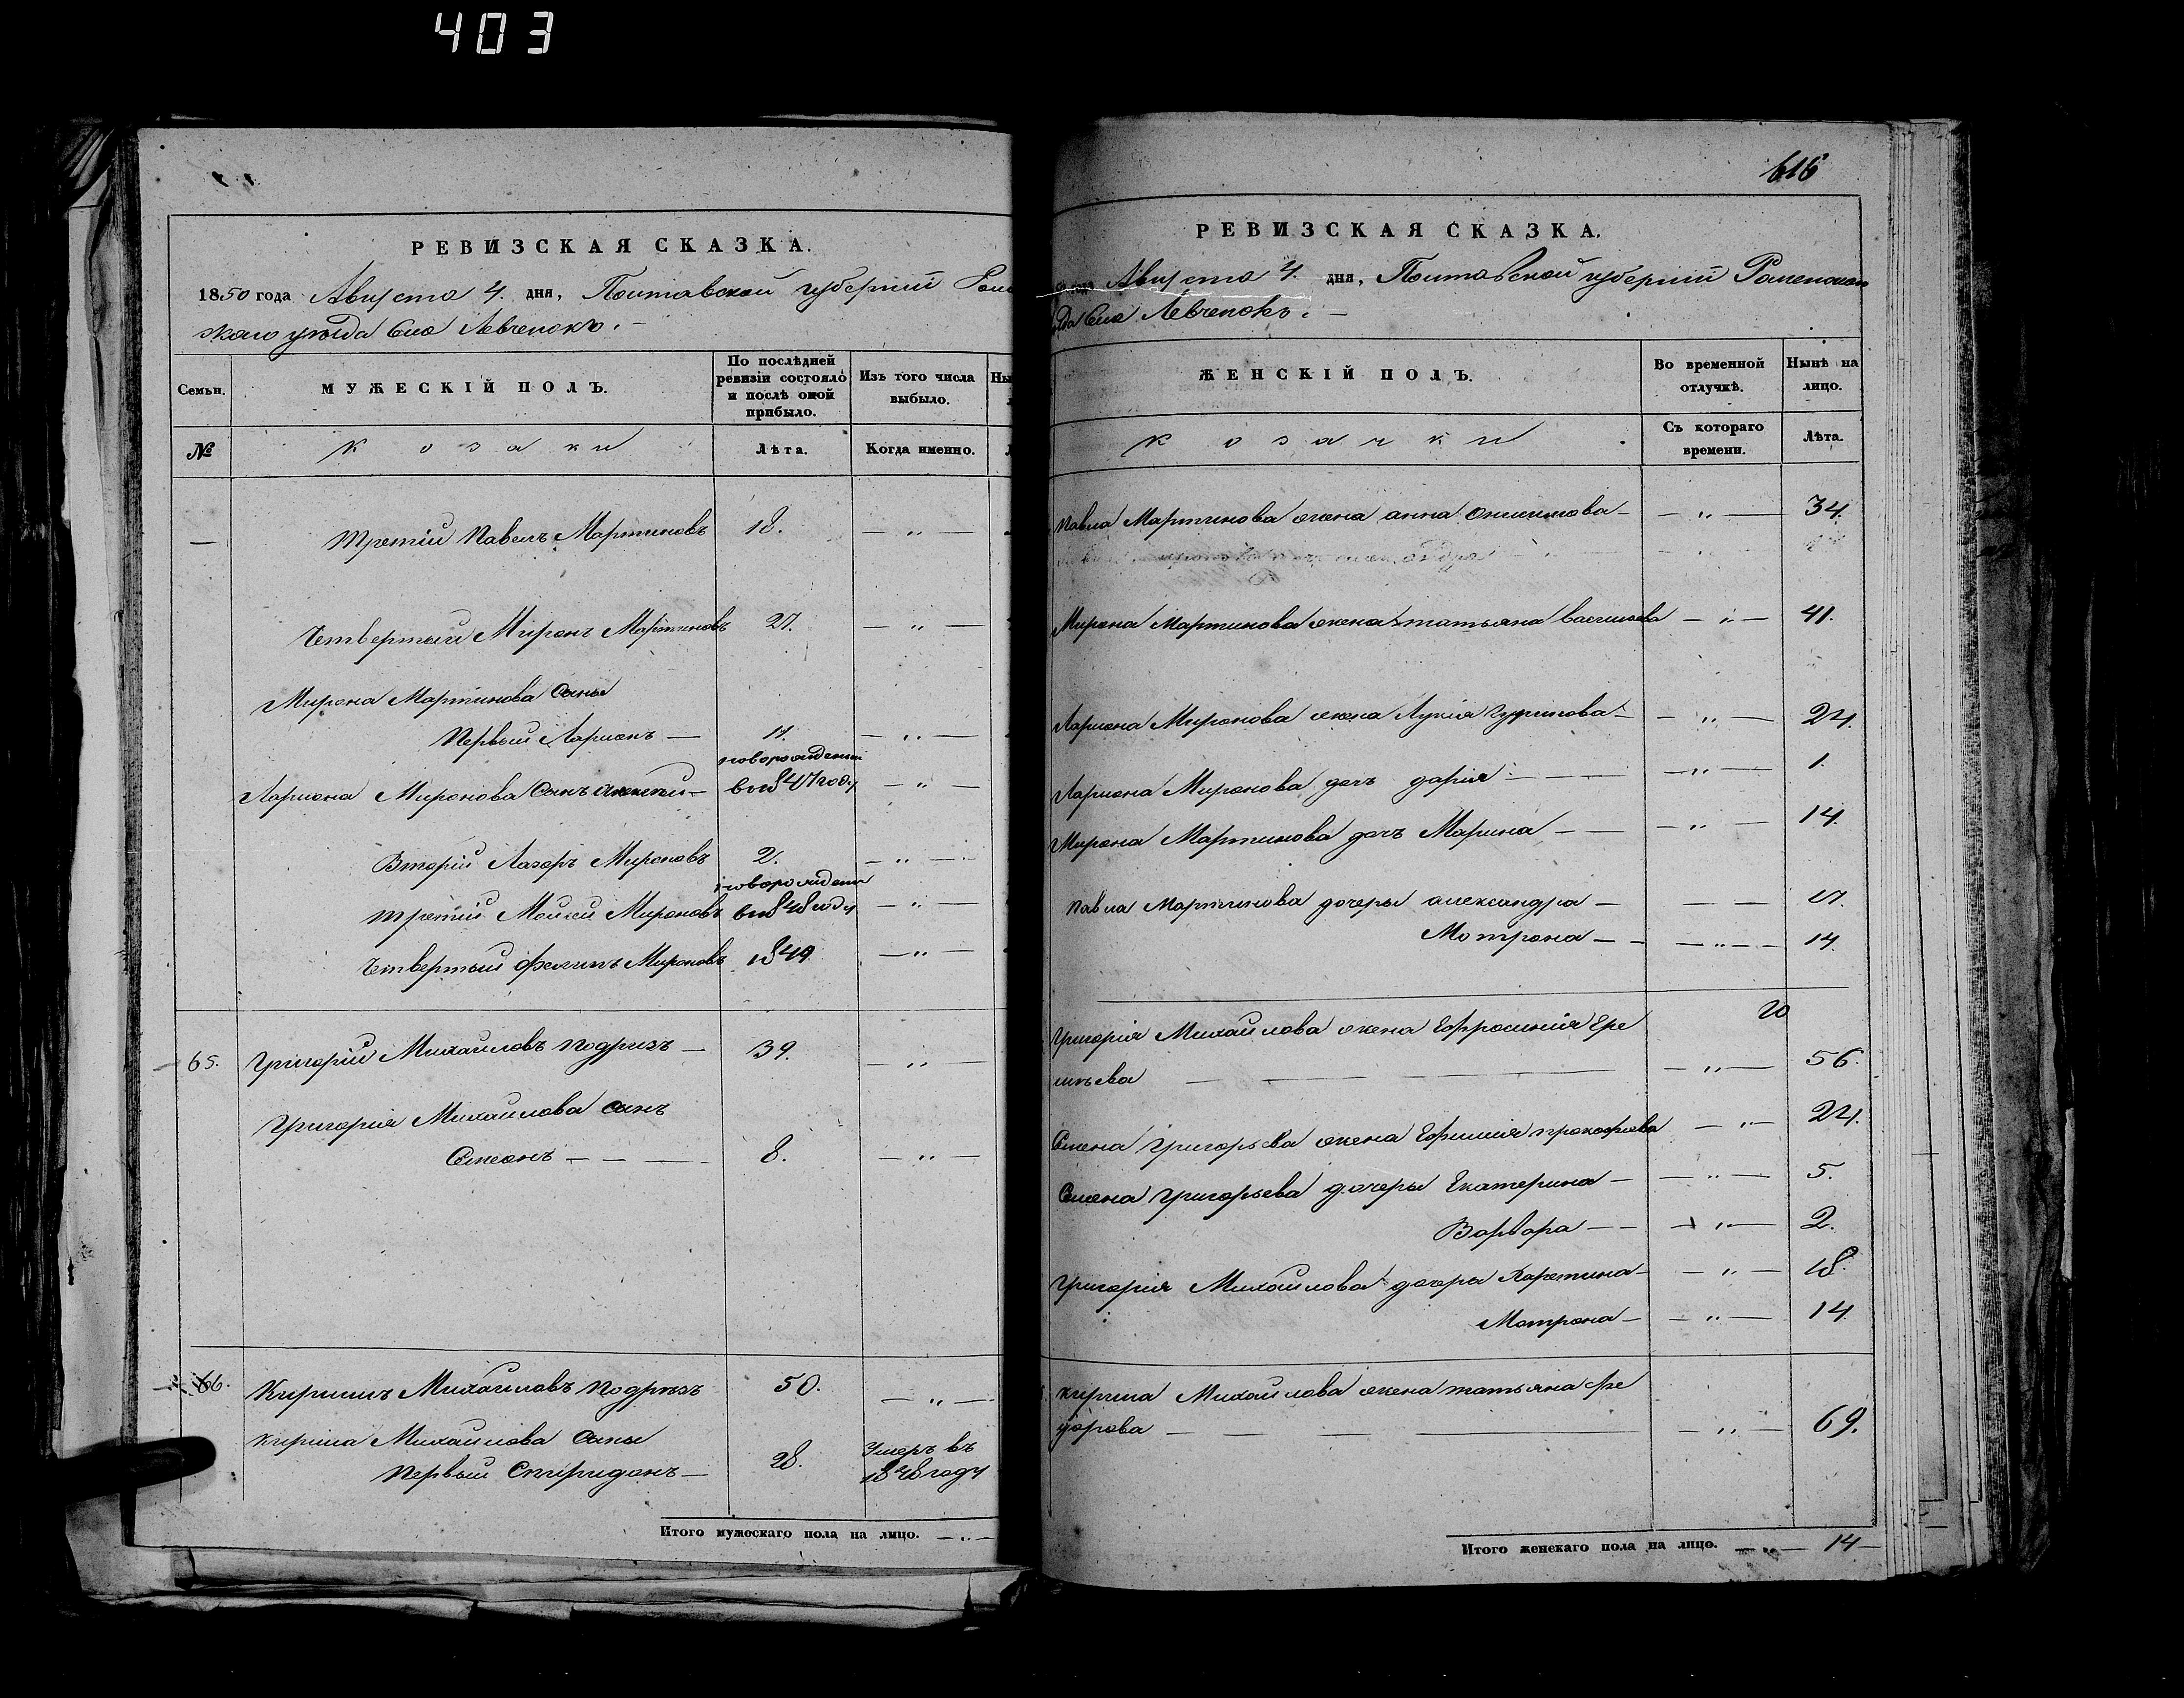 403
РЕВИЗСКАЯ СКАЗКА.
1850 года Августа 4. дня, Полтавской губерніи
скаго уѣзда Села Левченокъ.
Семьи.
МУЖЕСКІЙ ПОЛЪ.
По послѣдней ревизіи состояло и послѣ оной прибыло.
Изъ того числа выбыло.
№
Козаки
Лѣта.
Когда именно.
— третій Павелъ Мартиновъ 18. — „ —
Четвертый Миронъ Мартиновъ 27. — „ —
Мирона Мартинова Сыны
Первый Ларионъ — 11. — „ —
новорожденный
Лариона Миронова Сынъ Алексѣй — въ 1847 году — „ —
Вторій Лазоръ Мироновъ 2. — „ —
новорожден
третій Моисей Мироновъ въ 1848 году — „ —
Четвертый Филипъ Мироновъ 1849 — „ —
65. Григорій Михайловъ Подризъ — 39. — „ —
Григорія Михайлова Сынъ
Семенъ — — — 8. — „ —
66. Кирилъ Михайловъ Подрѣзъ 50. — „ —
Кирила Михайлова Сыны
Первый Спиридонъ — 28. Умеръ въ
1848 году
Итого мужескаго пола на лицо. — „ —
616
РЕВИЗСКАЯ СКАЗКА.
года Августа 4. дня, Полтавской губерніи Роменскаго
Села Левченокъ.
ЖЕНСКІЙ ПОЛЪ.
Во временной отлучкѣ.
Нынѣ на лицо.
Козачки
Съ котораго времени.
Лѣта.
Павла Мартинова жена анна Онисимова — — „ — 34.
Мирона Мартинова жена татьяна Василиева — „ — 41.
Лариона Миронова жена Лукія Гуринова — — „ — 24.
Лариона Миронова дочь дарія — — „ — 1.
Мирона Мартинова дочь Марина — — — „ — 14.
Павла Мартинова дочеры александра — — — 17.
Мотрона — — — „ — 14.
20
Григорія Михайлова жена Ефросинія Ере
мѣева — — — „ — 56.
Семена Григорьева жена Ефимия прокофіева — „ — 24.
Семена Григорьева дочеры Екатерина — — „ — 5.
Варвара — — — „ — 2.
Григорія Михайлова дочеры — „ — 18.
Мотрона — — „ — 14.
Кирила Михайлова жена татьяна Фе
дорова — — — „ — 69.
Итого женскаго пола на лицо. — „ — 14 —